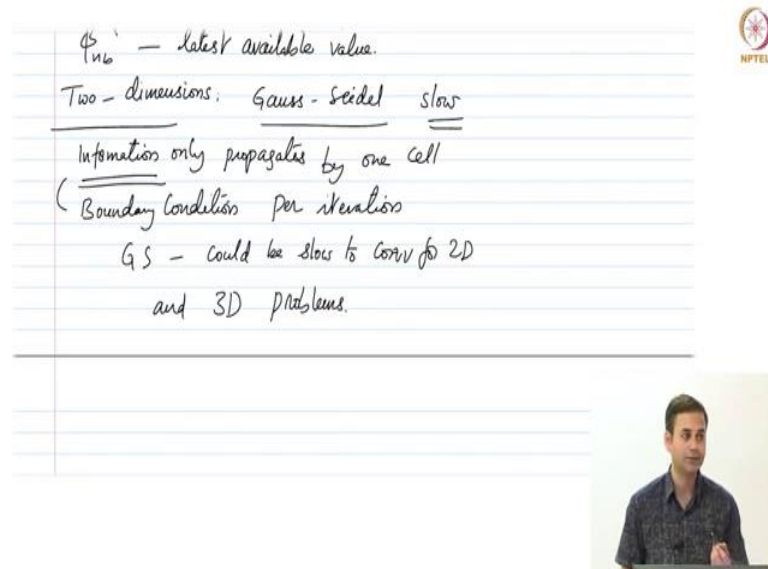 φnb — latest available value.
NPTEL
Two - dimensions: Gauss - Seidel slow
Infomation only propagates by one cell
( Boundary Condition per iteration
GS - Could be slow to conv for 2D
and 3D problems.